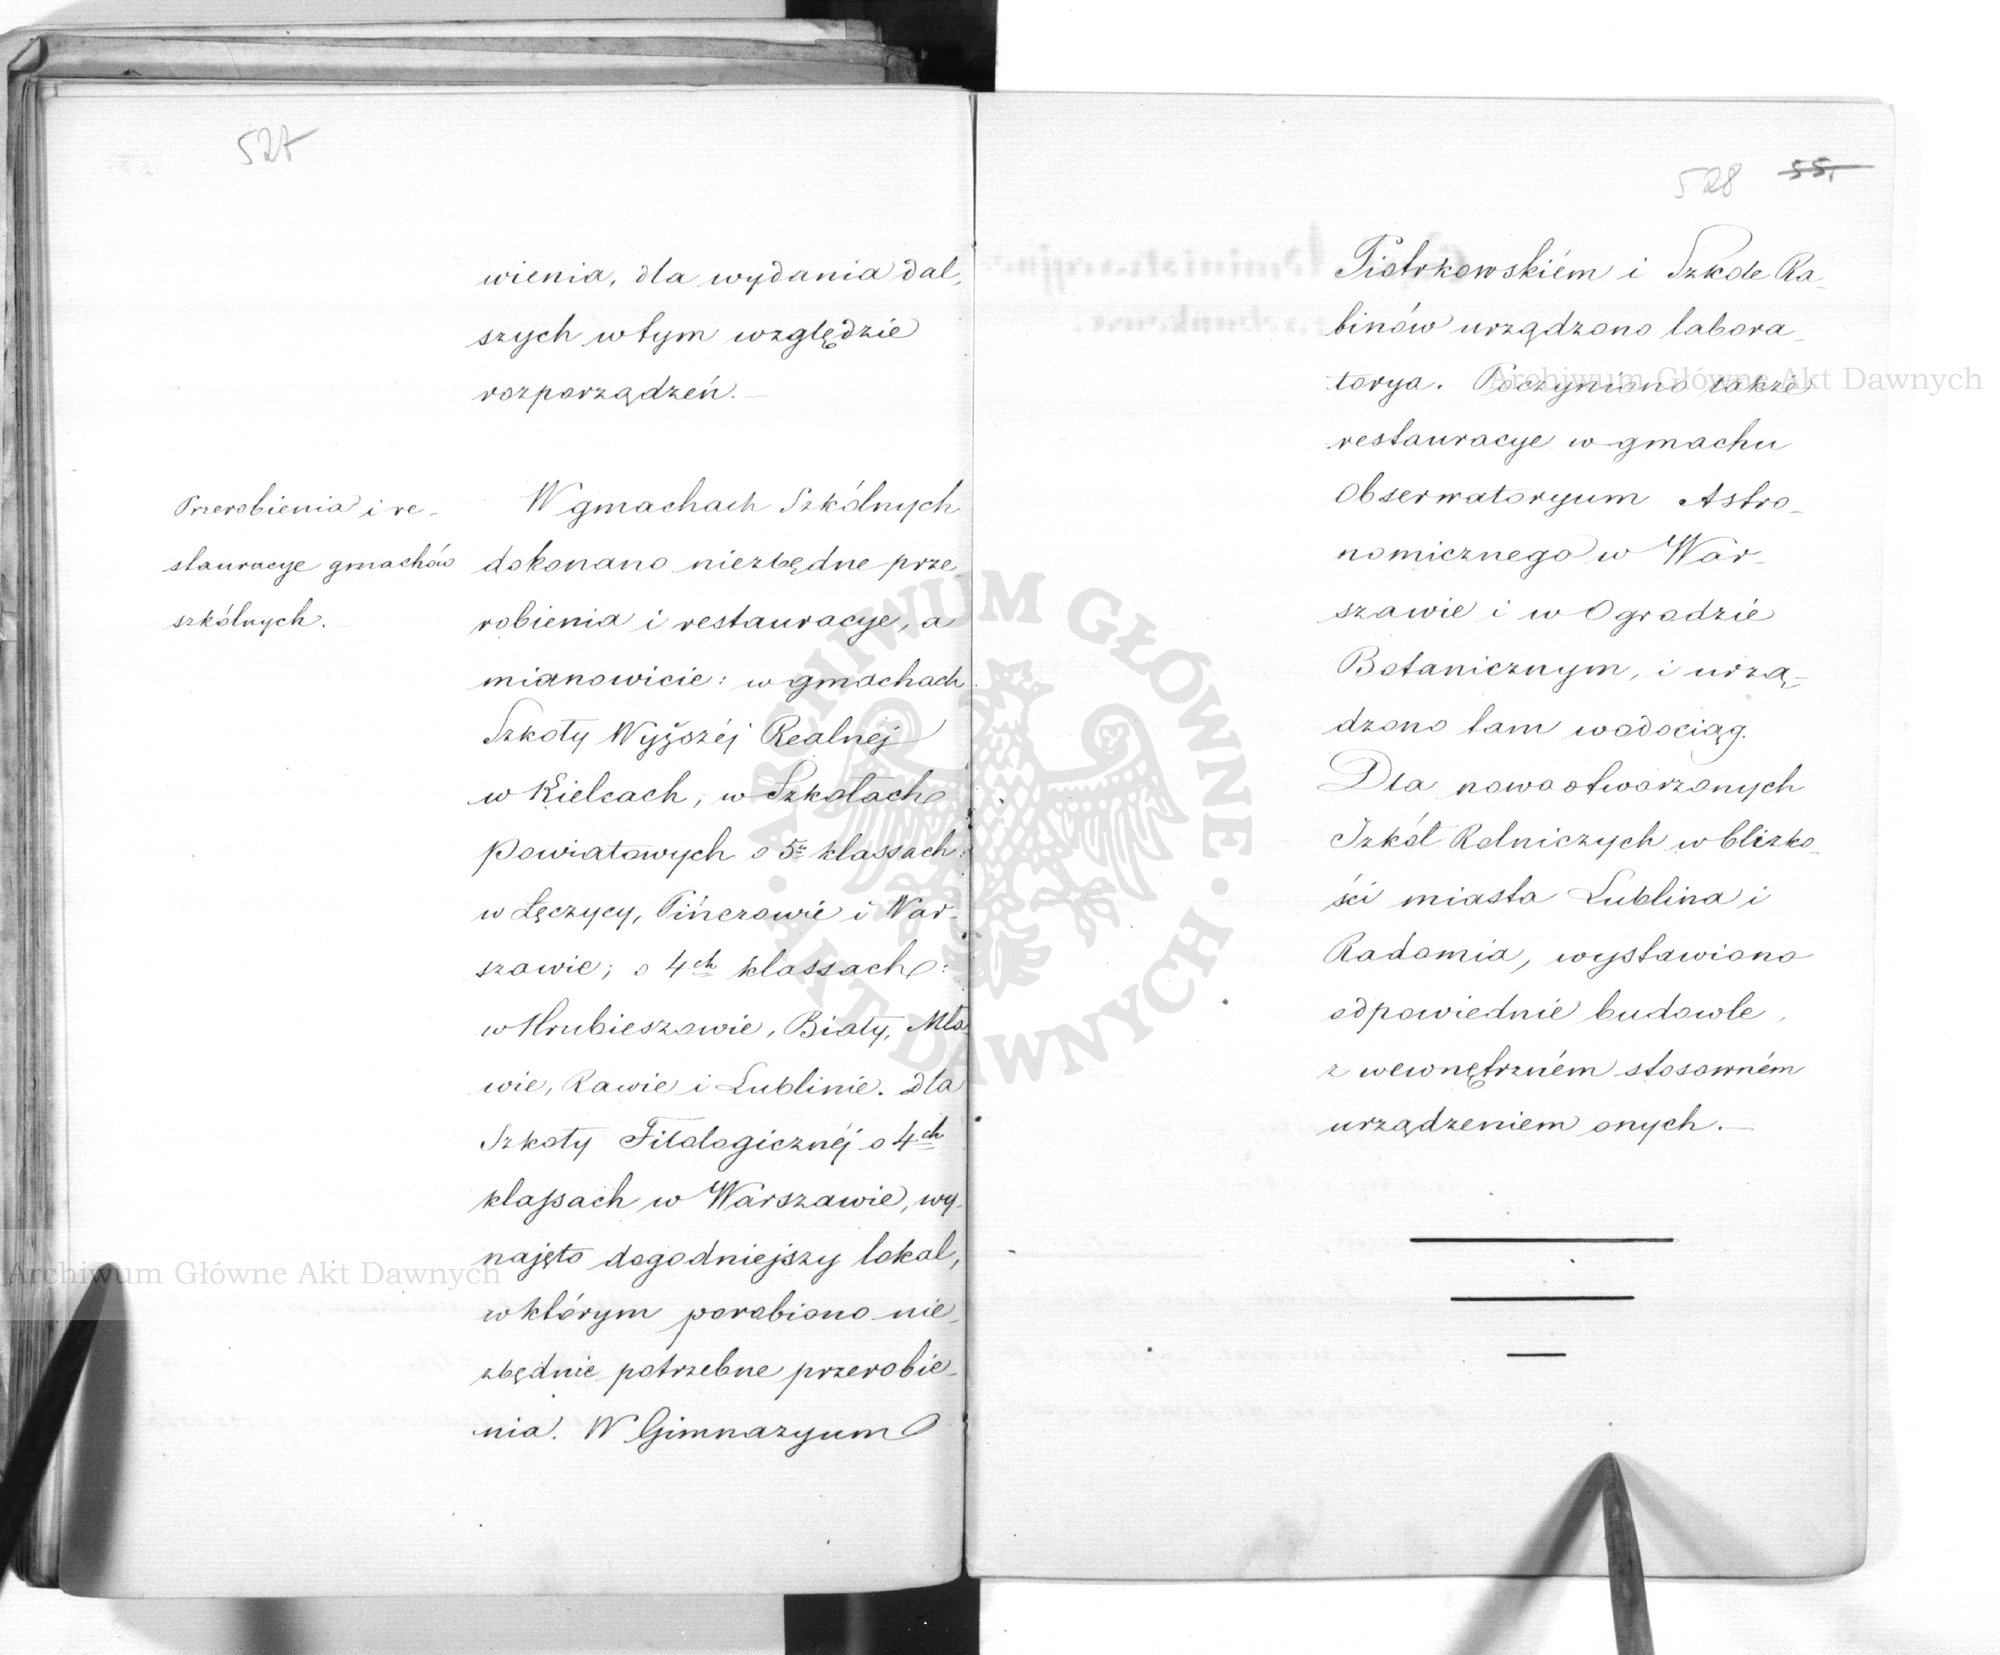 527
wienia, dla wydania dal-
szych w tym względzie
rozporządzeń. —
Przerobienia i re-
stauracye gmachów
szkólnych. —
W gmachach Szkólnych
dokonano niezbędne prze-
robienia i restauracye, a
mianowicie: w gmachach
Szkoły Wyższéj Realnej
w Kielcach, w Szkołach
Powiatowych o 5u klassach:
w Łęczycy, Pińczowie i War-
szawie; o 4ch klassach:
w Hrubieszowie, Biały, Mła
wie, Rawie i Lublinie. Dla
Szkoły Filologicznéj o 4ch
klassach w Warszawie, wy-
najęto dogodniejszy lokal,
w którym porobiono nie-
zbędnie potrzebne przerobie-
nia. W Gimnazyum
528 55.
Piotrkowskiém i Szkole Ra-
binów urządzono labora-
torya. Poczyniono także
restauracye w gmachu
Obserwatoryum Astro-
nomicznego w War-
szawie i w Ogrodzie
Botanicznym, i urzą-
dzono tam wodociąg.
Dla nowootworzonych
Szkół Rolniczych w blizko-
ści miasta Lublina i
Radomia, wystawiono
odpowiednie budowle,
z wewnętrzném stosowném
urządzeniem onych. —
Archiwum Główne Akt Dawnych
Archiwum Główne Akt Dawnych
ARCHIWUM GŁÓWNE · AKT DAWNYCH ·